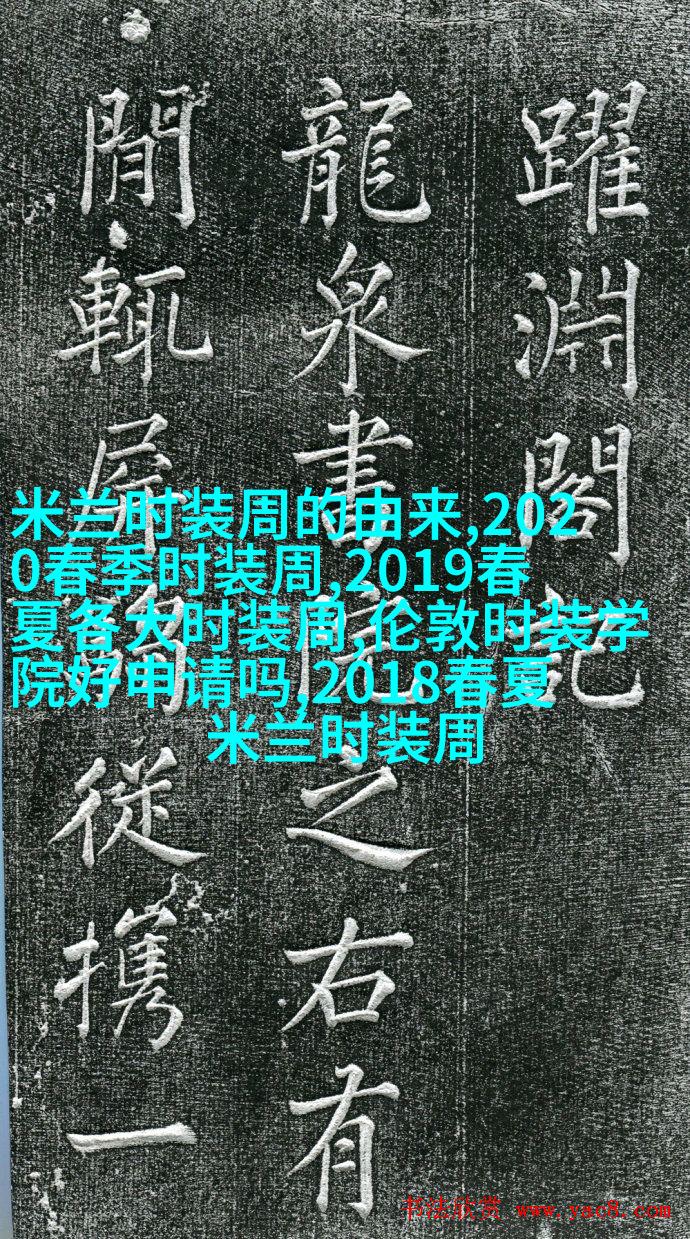 躍淵閣記
龍泉書院之右有
閒輒屏從攜一
米兰时装周的由来,202
0春季时装周,2019春
夏各大时装周,伦敦时装学
院好申请吗,2018春夏
米兰时装周
书法欣赏 www.yac8.com